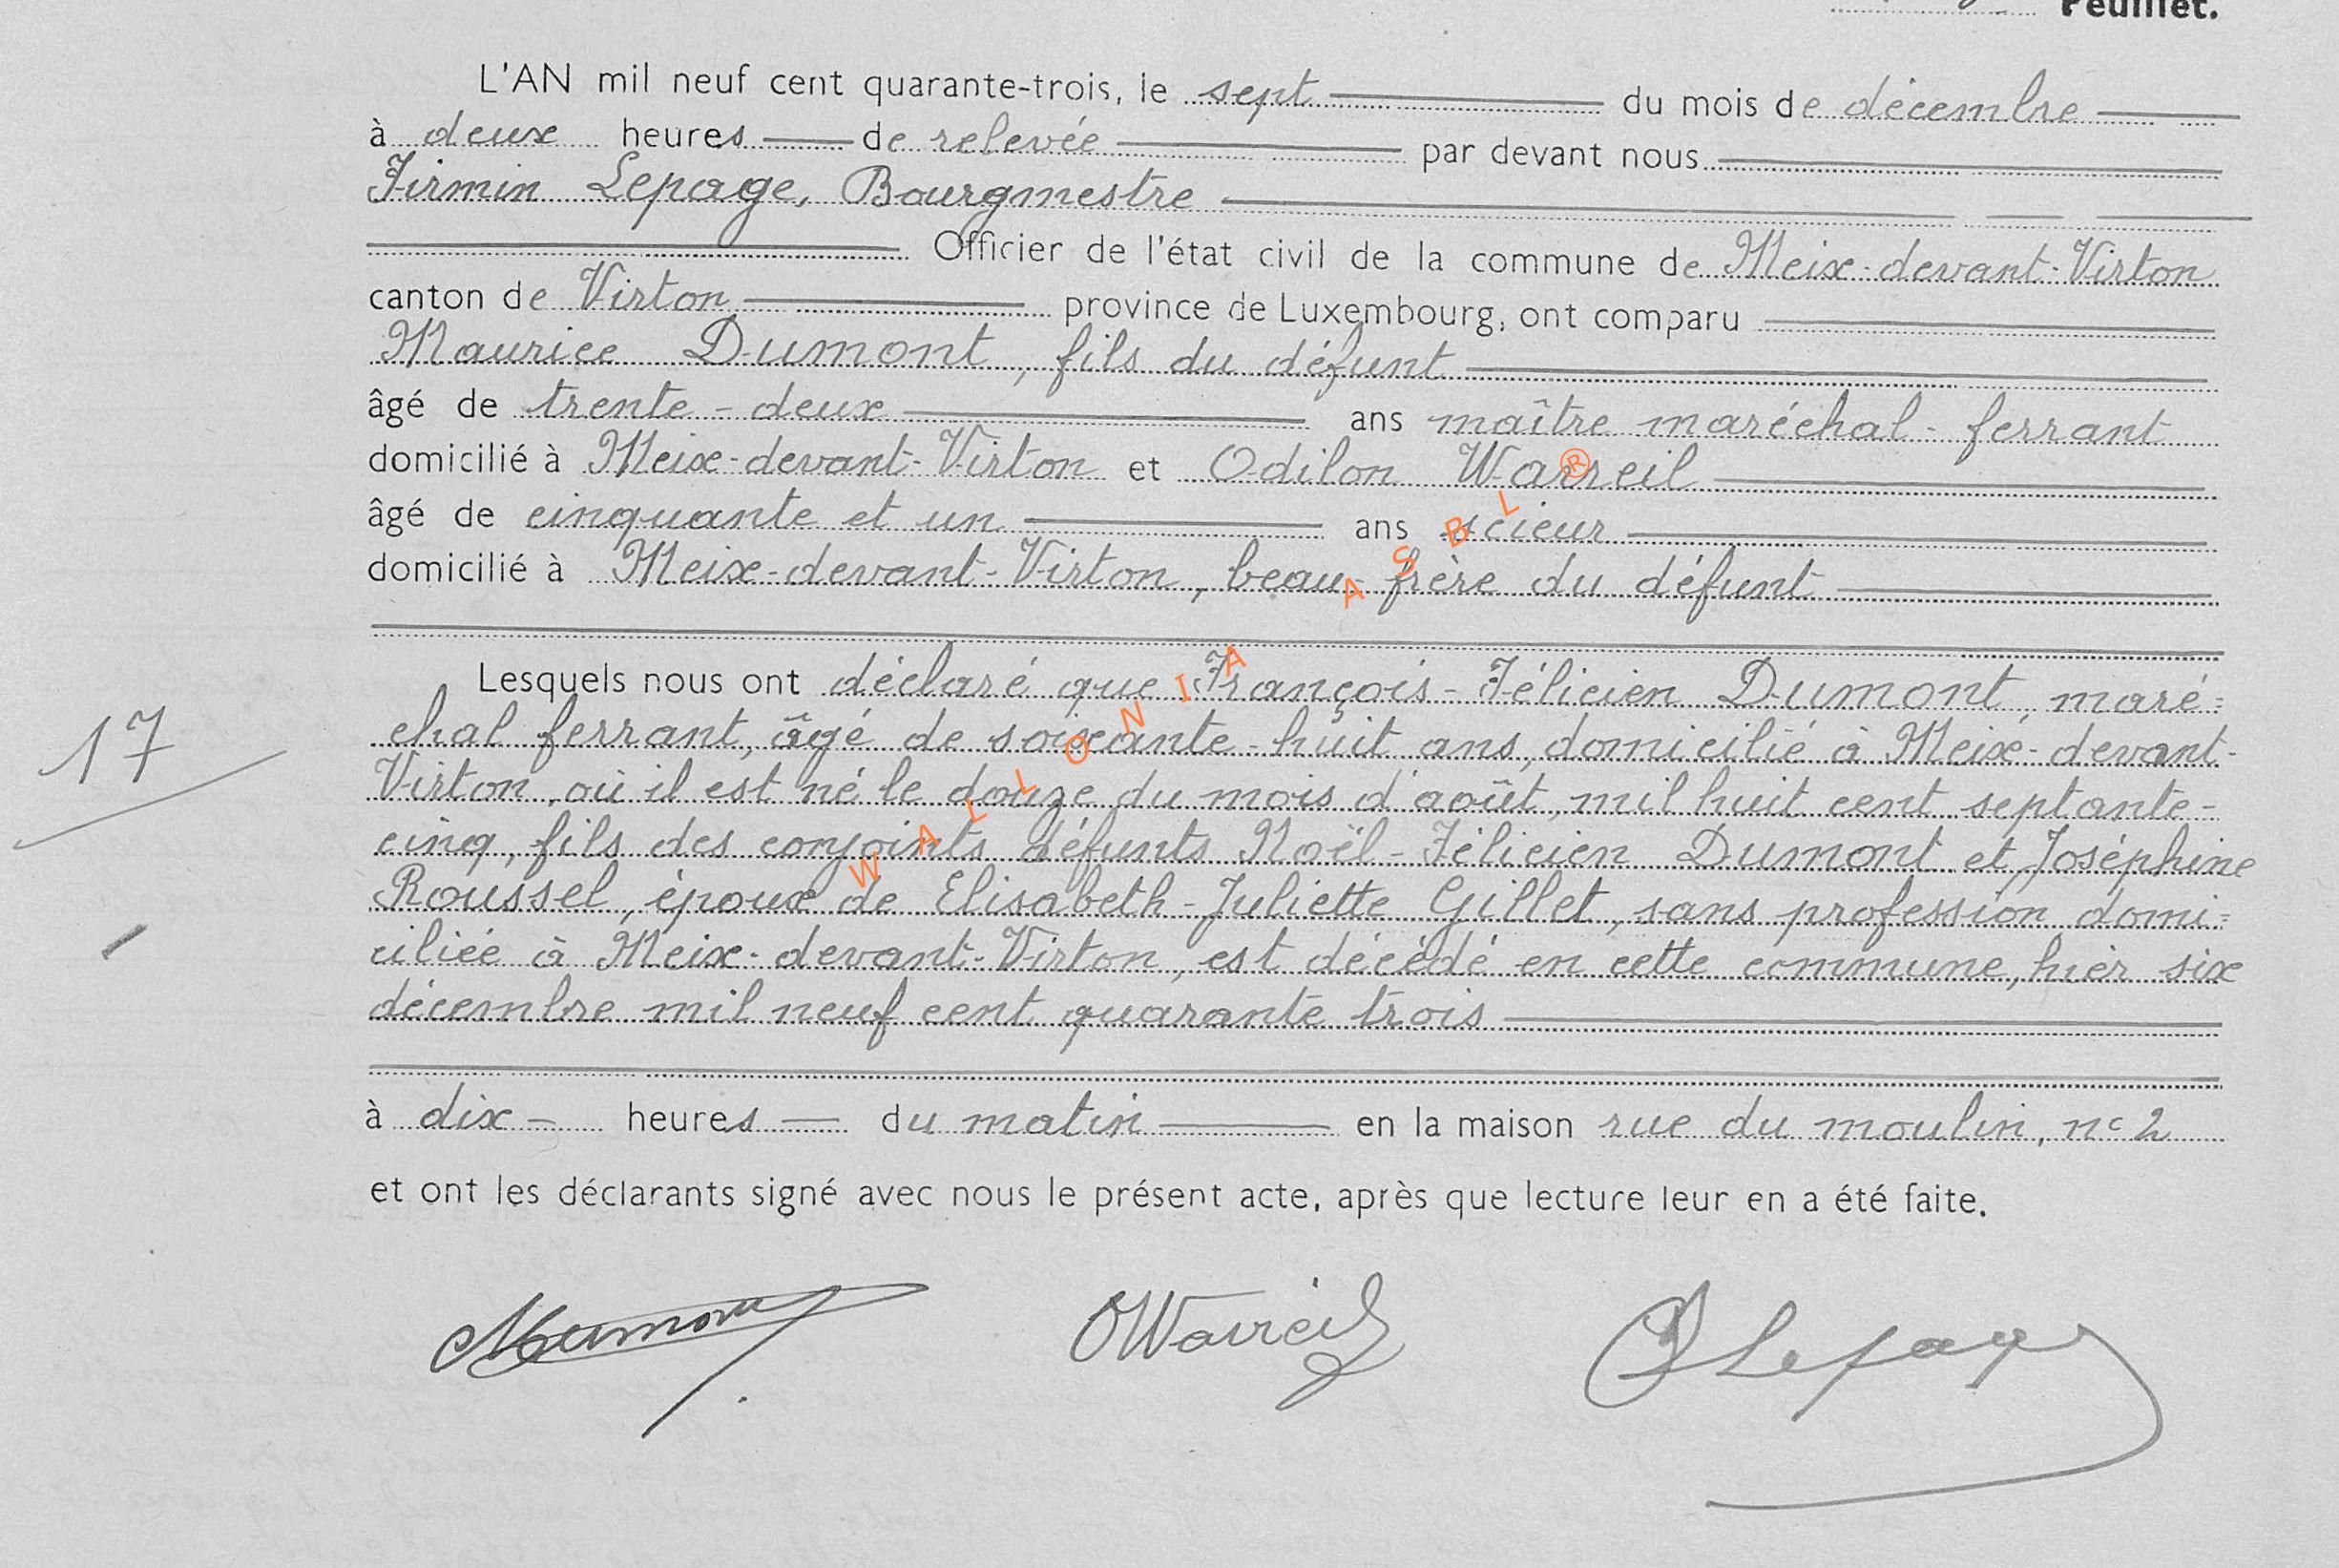 Feuillet.
L'AN mil neuf cent quarante-trois, le sept du mois de décembre
à deux heures de relevée par devant nous
Firmin Lepage, Bourgmestre
Officier de l'état civil de la commune de Meix-devant-Virton
canton de Virton province de Luxembourg, ont comparu
Maurice Dumont, fils du défunt
âgé de trente-deux ans maître maréchal-ferrant
domicilié à Meix-devant-Virton et Odilon Warreil
âgé de cinquante et un ans scieur
domicilié à Meix-devant-Virton, beau-frère du défunt
Lesquels nous ont déclaré que François-Félicien Dumont, maré=
chal ferrant, âgé de soixante-huit ans, domicilié à Meix-devant-
Virton, où il est né le douze du mois d'août, mil huit cent septante-
cinq, fils des conjoints défunts Noël-Félicien Dumont et Joséphine
Roussel, époux de Elisabeth-Juliette Gillet, sans profession domi=
ciliée à Meix-devant-Virton, est décédé en cette commune, hier six
décembre mil neuf cent quarante trois
à dix heures du matin en la maison rue du moulin, n° 2
et ont les déclarants signé avec nous le présent acte, après que lecture leur en a été faite.
17
MDumont OWarreil FLepage
WALLONIA ASBL ®